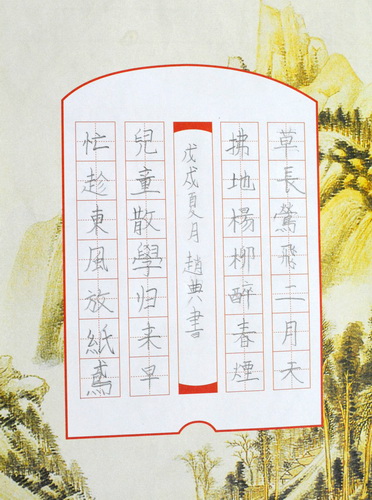 草長鶯飛二月天
拂地楊柳醉春煙
戊戌夏月趙典書
兒童散學归来早
忙趁東風放紙鳶